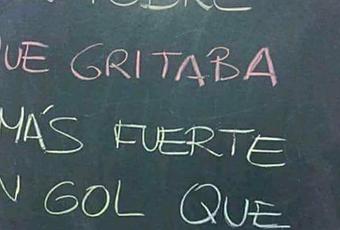 GRITABA
MÁS FUERTE
GOL QUE